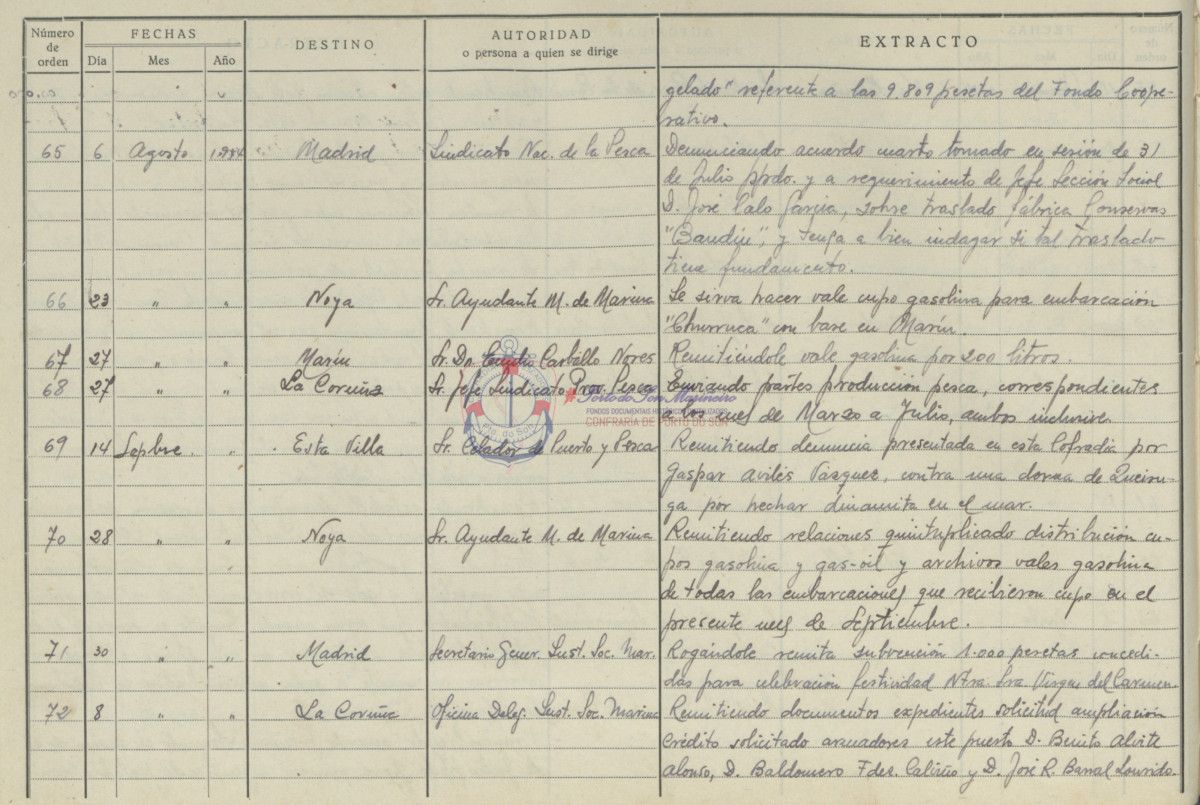 Número de orden FECHAS DESTINO AUTORIDAD o persona a quien se dirige EXTRACTO
Día Mes Año
gelado" referente a las 9.809 pesetas del Fondo Coope-
rativo.
65 6 Agosto Madrid Sindicato Nac. de la Pesca Denunciando acuerdo cuarto tomado en sesión de 31
de Julio ppdo. y a requerimiento de Jefe Sección Social
D. José Calo García, sobre traslado fábrica Conservas
"Bandín", y tenga a bien indagar si tal traslado
tiene fundamento.
66 23 " " Noya Sr. Ayudante M. de Marina Se sirva hacer vale cupo gasolina para embarcación
"Churruca" con base en Marín.
67 27 " " Marín Sr. Dn. Carballo Nores Remitiéndole vale gasolina por 200 litros.
68 27 " " La Coruña Sr. Jefe Sindicato Prov. Pesca Enviando partes producción pesca, correspondientes
a los mes de Marzo a Julio, ambos inclusive.
Porto do Son Mariñeiro
FONDOS DOCUMENTAIS HISTÓRICOS DIXITALIZADOS
CONFRARÍA DE PORTO DO SON
Pto. do Son
69 14 Sepbre. " Esta Villa Sr. Celador de Puerto y Pesca Remitiendo denuncia presentada en esta Cofradía por
Gaspar Avilés Vázquez, contra una dorna de Queiru-
ga por hechar dinamita en el mar.
70 28 " " Noya Sr. Ayudante M. de Marina Remitiendo relaciones quintuplicado distribución cu-
pos gasolina y gas-oil y archivos vales gasolina
de todas las embarcaciones que recibieron cupo en el
presente mes de Septiembre.
71 30 " " Madrid Secretario Gener. Inst. Soc. Mar. Rogándole remita subvención 1.000 pesetas concedi-
das para celebración festividad Ntra. Sra. Virgen del Carmen.
72 8 " " La Coruña Oficina Deleg. Inst. Soc. Marina Remitiendo documentos expedientes solicitud ampliación
crédito solicitado armadores este puerto D. Benito Alvite
Alonso, D. Baldomero Fdez. Caliño y D. José R. Barral Lourido.